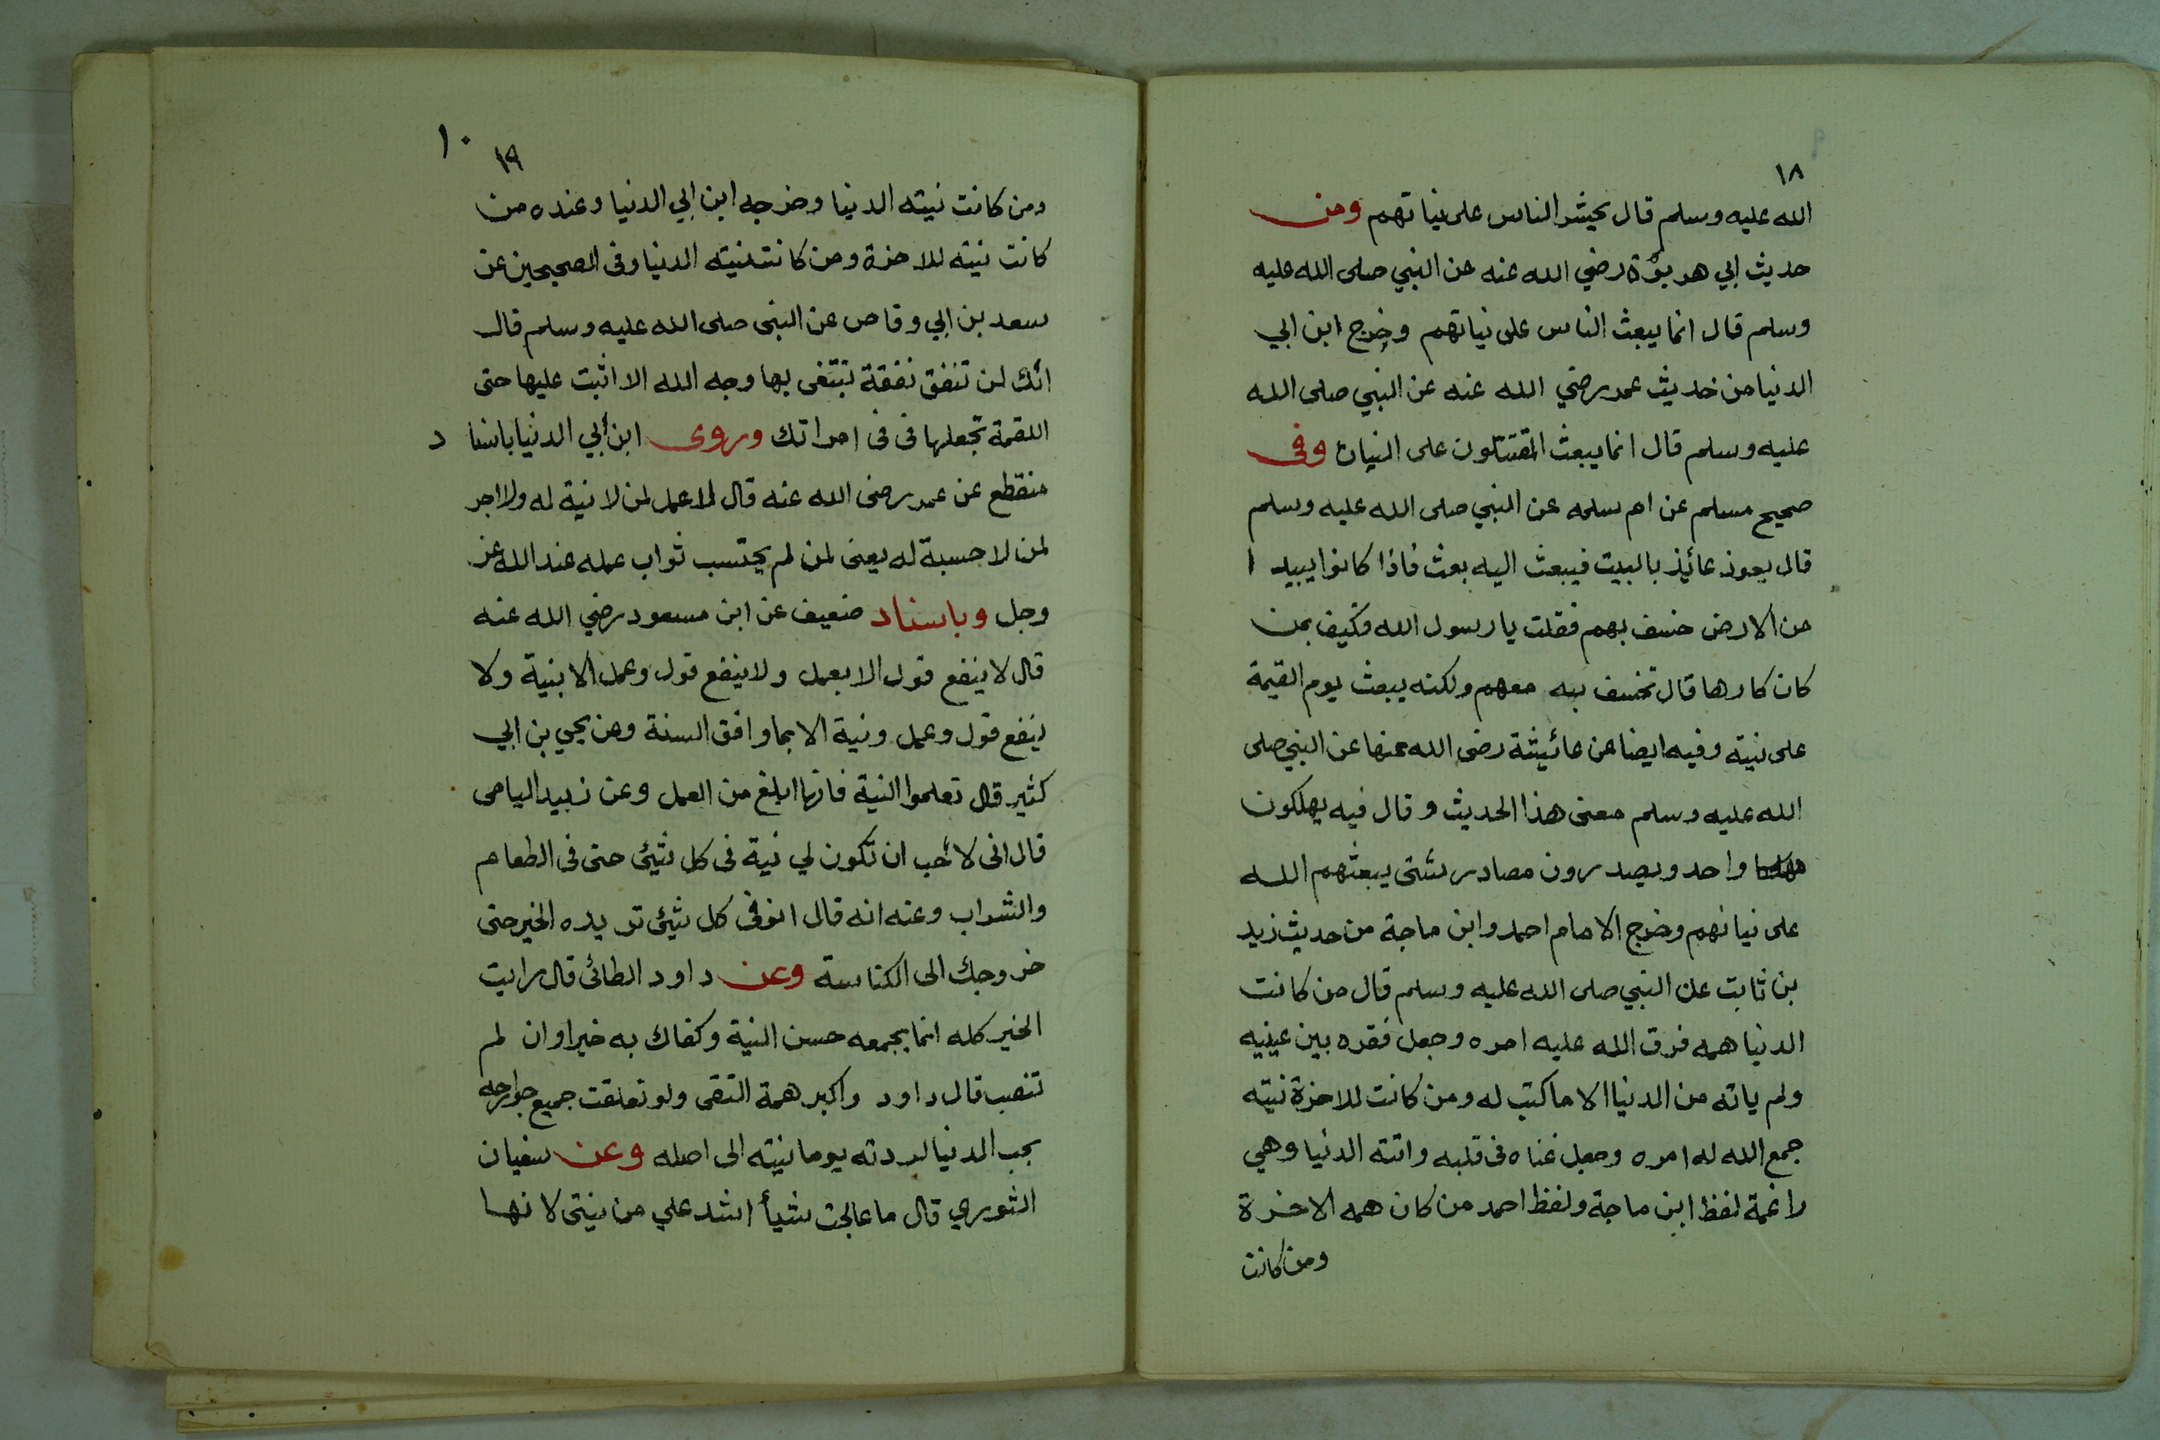 ١٨
الله عليه وسلم قال يحشر الناس على نياتهم ومن
حديث ابي هريرة رضي الله عنه عن النبي صلى الله عليه
وسلم قال انما يبعث الناس على نياتهم وخرج ابن ابي
الدنيا من حديث عمر رضي الله عنه عن النبي صلى الله
عليه وسلم قال انما يبعث المقتتلون على النيات وفي
صحيح مسلم عن ام سلمه عن النبي صلى الله عليه وسلم
قال يعوذ عائذ بالبيت فيبعث اليه بعث فاذا كانوا ببيدا
من الارض خسف بهم فقلت يا رسول الله فكيف بمن
كان كارها قال تخسف به معهم ولكنه يبعث يوم القيمة
على نيته وفيه ايضا عن عائيشة رضى الله عنها عن النبي صلى
الله عليه وسلم معنى هذا الحديث وقال فيه يهلكون
مهلكا واحد ويصدرون مصادر شتى يبعثهم الله
على نياتهم وخرج الامام احمد وابن ماجة من حديث زيد
بن ثابت عن النبي صلى الله عليه وسلم قال من كانت
الدنيا همه فرق الله عليه امره وجعل فقره بين عينيه
ولم ياته من الدنيا الا ما كتب له ومن كانت للاخرة نيته
جمع الله له امره وجعل غناه في قلبه واتته الدنيا وهي
راغمة لفظ ابن ماجة ولفظ احمد من كان همه الاخرة
ومن كانت
١٠
١٩
ومن كانت نيته الدنيا وخرجه ابن ابي الدنيا وعنده من
كانت نيته للاخرة ومن كانت نيته الدنيا وفى الصحيحين عن
سعد بن ابي وقاص عن النبى صلى الله عليه وسلم قال
انك لن تنفق نفقة تبتغى بها وجه الله الا اثبت عليها حتى
اللقمة تجعلها فى فى امراتك وروى ابن أبي الدنيا باسنا د
منقطع عن عمر رضى الله عنه قال لا عمل لمن لا نية له ولا اجر
لمن لا حسبة له يعنى لمن لم يحتسب ثواب عمله عند الله عز
وجل وباسناد ضعيف عن ابن مسعود رضي الله عنه
قال لا ينفع قول الا بعمل ولا ينفع قول وعمل الا بنية ولا
ينفع قول وعمل ونية الا بما وافق السنة وعن يحي بن ابي
كثير قال تعلموا النية فانها ابلغ من العمل وعن زبيد اليامى
قال انى لأحب ان تكون لي نية فى كل شيئ حتى فى الطعام
والشراب وعنه انه قال انو فى كل شيئ تريده الخير حتى
خروجك الى الكناسة وعن داود الطائى قال رايت
الخير كله انما يجمعه حسن النية وكفاك به خيرا وان لم
تنصب قال داود واكبر همة التقى ولو تعلقت جميع جوارحه
بحب الدنيا لردته يوما نيته الى اصله وعن سفيان
الثوري قال ما عالجت شيأ اشد علي من نيتى لانها